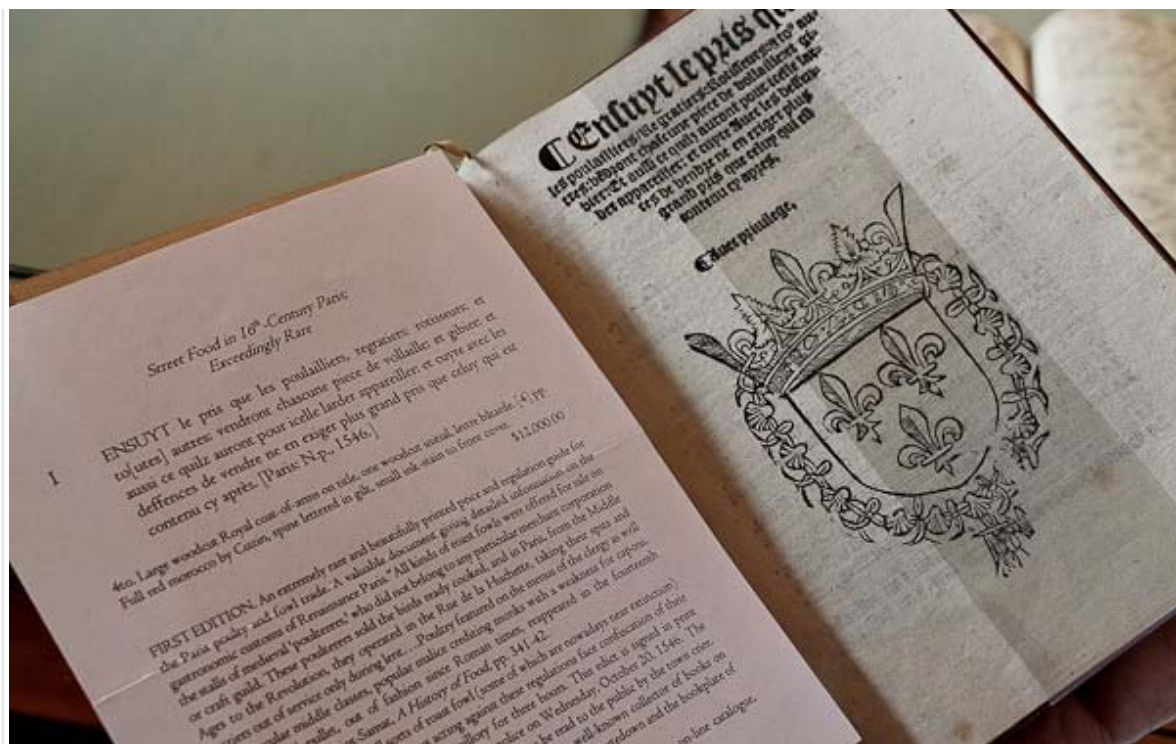 Street Food in 16th-Century Paris;
Exceedingly Rare
I
ENSUYT le pris que les poulailliers, regratiers; rotisseurs; et
to[utes] autres: vendront chascune piece de vollaille: et gibier: et
aussi ce quilz auront pour icelle larder appareiller: et cuyre avec les
deffences de vendre ne en exiger plus grand pris que celuy qui est
contenu cy après. [Paris: N.p., 1546.]
$12,000.00
4to. Large woodcut Royal coat-of-arms on title, one woodcut initial, lettre bâtarde. [4] pp.
Full red morocco by Cuzin, spine lettered in gilt, small ink-stain to front cover.
FIRST EDITION. An extremely rare and beautifully printed price and regulation guide for
the Paris poultry and fowl trade. A valuable document giving detailed information on the
gastronomic customs of Renaissance Paris. "All kinds of roast fowls were offered for sale on
the stalls of medieval 'poulterers,' who did not belong to any particular merchant corporation
or craft guild. These poulterers sold the birds ready cooked, and in Paris, from the Middle
Ages to the Revolution, they operated in the Rue de la Huchette, taking their spits and
out of service only during lent....Poultry featured on the menus of the clergy as well
middle classes, popular malice crediting monks with a weakness for capons.
out of fashion since Roman times, reappeared in the fourteenth
A History of Food, pp. 341-42.
sorts of roast fowl (some of which are nowadays near extinction)
acting against these regulations face confiscation of their
pillory for three hours. This edict is signed in print
on Wednesday, October 20, 1546. The
be read to the public by the town crier.
well-known collector of books on
and the bookplate of
on-line catalogue.
Ensuyt le pris
les poulailliers: Regratiers: Rotisseurs:
tres: vendront chascune piece de vollaille: et gi-
bier: Et aussi ce quilz auront pour icelle lar-
der appareiller: et cuyre Auec les deffen-
ces de vendre ne en exiger plus
grand pris que celuy qui est
contenu cy apres.
Auec priuilege.